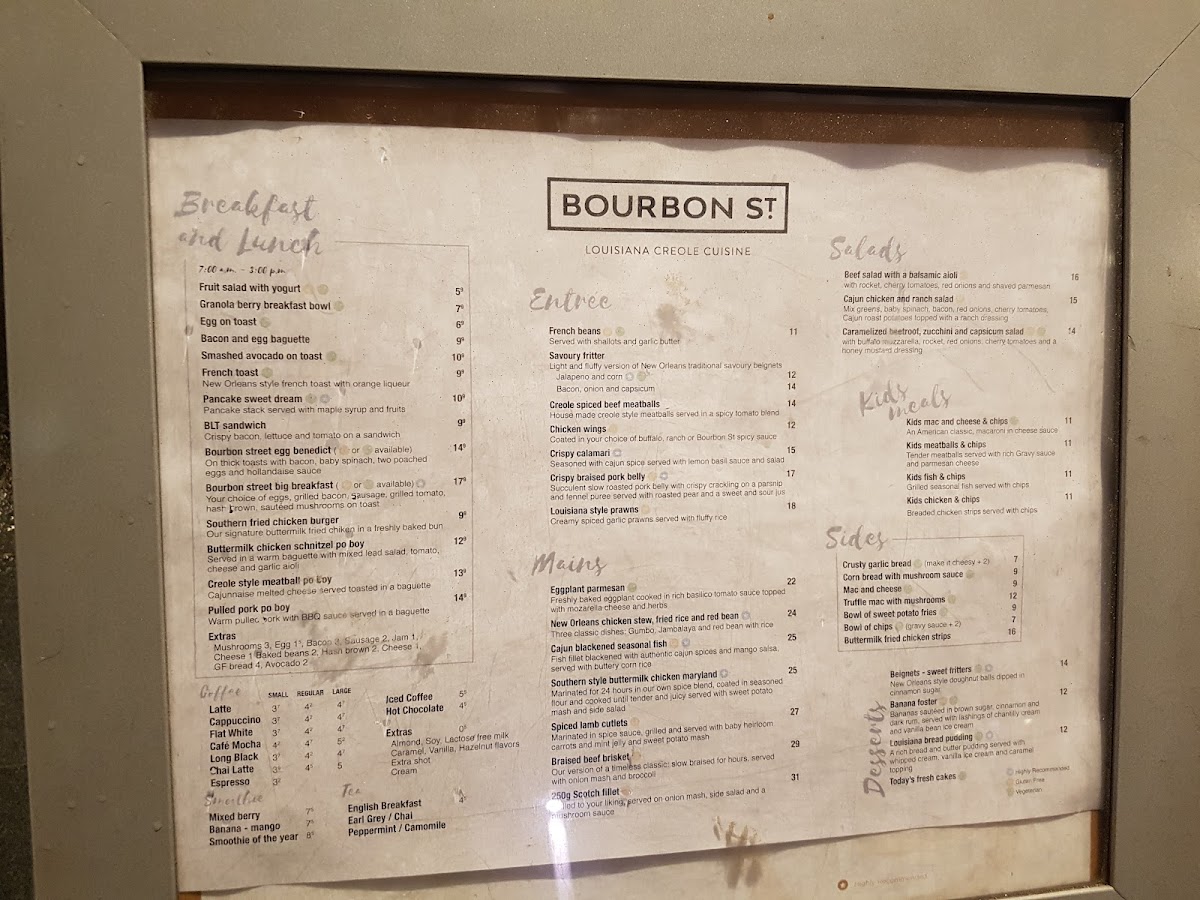 BOURBON ST
LOUISIANA CREOLE CUISINE
Breakfast
and Lunch
7:00 a.m - 3:00 p.m
Fruit salad with yogurt
Granola berry breakfast bowl
Egg on toast
Bacon and egg baguette
Smashed avocado on toast
French toast
New Orleans style french toast with orange liqueur
Pancake sweet dream
Pancake stack served with maple syrup and fruits
BLT sandwich
Crispy bacon, lettuce and tomato on a sandwich
Bourbon street egg benedict ( or available)
On thick toasts with bacon, baby spinach, two poached
eggs and hollandaise sauce
Bourbon street big breakfast ( or available)
Your choice of eggs, grilled bacon, sausage, grilled tomato,
hash brown, sautéed mushrooms on toast
Southern fried chicken burger
Our signature buttermilk fried chiken in a freshly baked bun
Buttermilk chicken schnitzel po boy
Served in a warm baguette with mixed lead salad, tomato,
cheese and garlic aioli
Creole style meatball po boy
Cajunnaise melted cheese served toasted in a baguette
Pulled pork po boy
Warm pulled pork with BBQ sauce served in a baguette
Extras
Mushrooms 3, Egg 1, Bacon 3, Sausage 2, Jam 1,
Cheese 1 Baked beans 2, Hash brown 2, Cheese 1,
GF bread 4, Avocado 2
Coffee SMALL REGULAR LARGE
Latte
Cappuccino
Flat White
Café Mocha
Long Black
Chai Latte
Espresso
Iced Coffee
Hot Chocolate
Extras
Almond, Soy, Lactose free milk
Caramel, Vanilla, Hazelnut flavors
Extra shot
Cream
Smoothie
Mixed berry
Banana - mango
Smoothie of the year
Tea
English Breakfast
Earl Grey / Chai
Peppermint / Camomile
Entree
French beans 11
Served with shallots and garlic butter
Savoury fritter
Light and fluffy version of New Orleans traditional savoury beignets
Jalapeno and corn 12
Bacon, onion and capsicum 14
Creole spiced beef meatballs 14
House made creole style meatballs served in a spicy tomato blend
Chicken wings 12
Coated in your choice of buffalo, ranch or Bourbon St spicy sauce
Crispy calamari 15
Seasoned with cajun spice served with lemon basil sauce and salad
Crispy braised pork belly 17
Succulent slow roasted pork belly with crispy crackling on a parsnip
and fennel puree served with roasted pear and a sweet and sour jus
Louisiana style prawns 18
Creamy spiced garlic prawns served with fluffy rice
Mains
Eggplant parmesan 22
Freshly baked eggplant cooked in rich basilico tomato sauce topped
with mozarella cheese and herbs
New Orleans chicken stew, fried rice and red bean 24
Three classic dishes; Gumbo, Jambalaya and red bean with rice
Cajun blackened seasonal fish 25
Fish fillet blackened with authentic cajun spices and mango salsa,
served with buttery corn rice
Southern style buttermilk chicken maryland 25
Marinated for 24 hours in our own spice blend, coated in seasoned
flour and cooked until tender and juicy served with sweet potato
mash and side salad
Spiced lamb cutlets 27
Marinated in spice sauce, grilled and served with baby heirloom
carrots and mint jelly and sweet potato mash
Braised beef brisket 29
Our version of a timeless classic; slow braised for hours, served
with onion mash and broccoli
250g Scotch fillet 31
to your liking, served on onion mash, side salad and a
mushroom sauce
Salads
Beef salad with a balsamic aioli 16
with rocket, cherry tomatoes, red onions and shaved parmesan
Cajun chicken and ranch salad 15
Mix greens, baby spinach, bacon, red onions, cherry tomatoes,
Cajun roast potatoes topped with a ranch dressing
Caramelized beetroot, zucchini and capsicum salad 14
with buffalo muzzarella, rocket, red onions, cherry tomatoes and a
honey mustard dressing
Kids
meals
Kids mac and cheese & chips 11
An American classic, macaroni in cheese sauce
Kids meatballs & chips 11
Tender meatballs served with rich Gravy sauce
and parmesan cheese
Kids fish & chips 11
Grilled seasonal fish served with chips
Kids chicken & chips 11
Breaded chicken strips served with chips
Sides
Crusty garlic bread (make it cheesy + 2) 7
Corn bread with mushroom sauce 9
Mac and cheese 9
Truffle mac with mushrooms 12
Bowl of sweet potato fries 9
Bowl of chips (gravy sauce + 2) 7
Buttermilk fried chicken strips 16
Desserts
Beignets - sweet fritters 14
New Orleans style doughnut balls dipped in
cinnamon sugar
Banana foster 12
Bananas sautéed in brown sugar, cinnamon and
dark rum, served with lashings of chantilly cream
and vanilla bean ice cream
Louisiana bread pudding 12
A rich bread and butter pudding served with
whipped cream, vanilla ice cream and caramel
topping
Today's fresh cakes
Highly Recommended
Gluten Free
Vegetarian
Highly Recommended